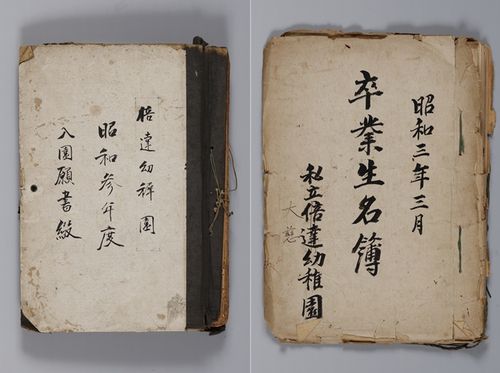 倍達幼稚園
昭和參年度
入園願書綴
昭和三年三月
卒業生名簿
私立倍達幼稚園
大慈